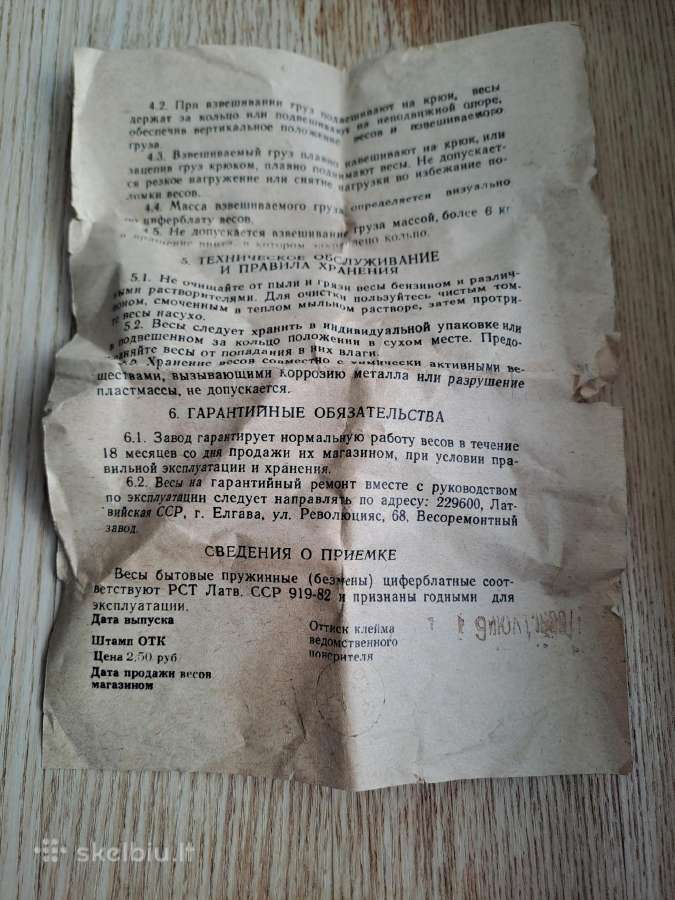 4.2. При взвешивании груз подвешивают на крюк, весы
держат за кольцо или подвешивают на неподвижной опоре,
обеспечив вертикальное положение весов и взвешиваемого
груза.
4.3. Взвешиваемый груз плавно навешивают на крюк, или
зацепив груз крюком, плавно поднимают весы. Не допускает-
ся резкое нагружение или снятие нагрузки во избежание по-
ломки весов.
4.4. Масса взвешиваемого груза определяется визуально
по циферблату весов.
4.5. Не допускается взвешивание груза массой, более 6 кг
и вращение винта, в котором закреплено кольцо.
5. ТЕХНИЧЕСКОЕ ОБСЛУЖИВАНИЕ
И ПРАВИЛА ХРАНЕНИЯ
5.1. Не очищайте от пыли и грязи весы бензином и различ-
ными растворителями. Для очистки пользуйтесь чистым там-
поном, смоченным в теплом мыльном растворе, затем протри-
те весы насухо.
5.2. Весы следует хранить в индивидуальной упаковке или
в подвешенном за кольцо положении в сухом месте. Предо-
храняйте весы от попадания в них влаги.
Хранение весов совместно с химически активными ве-
ществами, вызывающими коррозию металла или разрушение
пластмассы, не допускается.
6. ГАРАНТИЙНЫЕ ОБЯЗАТЕЛЬСТВА
6.1. Завод гарантирует нормальную работу весов в течение
18 месяцев со дня продажи их магазином, при условии пра-
вильной эксплуатации и хранения.
6.2. Весы на гарантийный ремонт вместе с руководством
по эксплуатации следует направлять по адресу: 229600, Лат-
вийская ССР, г. Елгава, ул. Революцияс, 68, Весоремонтный
завод.
СВЕДЕНИЯ О ПРИЕМКЕ
Весы бытовые пружинные (безмены) циферблатные соот-
ветствуют РСТ Латв. ССР 919-82 и признаны годными для
эксплуатации.
Дата выпуска
Штамп ОТК
Цена 2,50 руб
Дата продажи весов
магазином
Оттиск клейма
ведомственного
поверителя
skelbiu.lt